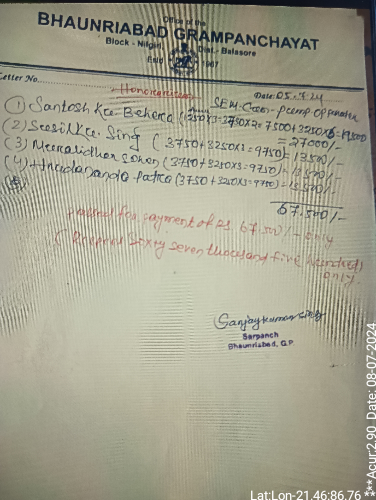 Office of the
BHAUNRIABAD GRAMPANCHAYAT
Block - Nilgiri, Dist.- Balasore
Estd 1967
Letter No.
Date. 05.7.24
Honorarium SEM-Cum-Pump Operator
(1) Santosh Ku. Behera (1250X3=3750X2=7500+3250X6=19500
=27000/-
(2) Susil Ku. Sing (3750+3250X3=9750)=13500/-
(3) Muralidhar (3750+3250X3=9750)=13500/-
(4) Hrudananda Patra (3750+3250X3=9750)=13500/-
67.500/-
passed for payment of Rs 67.500/- only
(Rupees Sixty seven thousand five hundred)
only
Sanjay kumar Sing
Sarpanch
Bhaunriabad, G.P.
Lat:Lon-21.46:86.76 ***Acur:2.90 Date: 08-07-2024